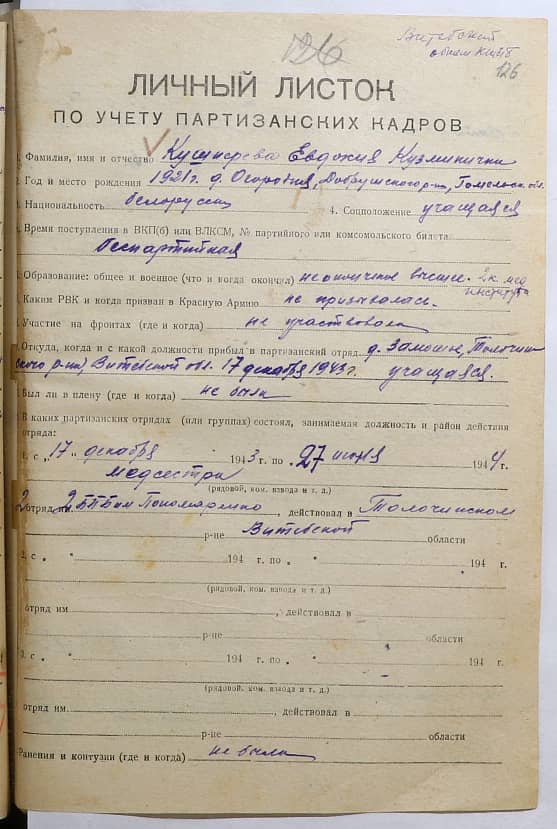 126
Витебский
обком КП(б)Б
126
ЛИЧНЫЙ ЛИСТОК
ПО УЧЕТУ ПАРТИЗАНСКИХ КАДРОВ
1. Фамилия, имя и отчество Кушнерева Евдокия Кузминична
2. Год и место рождения 1921 г. д. Огородня, Добрушского р-на, Гомельск. обл.
3. Национальность белоруссиа 4. Соцположение учащаяся
Время поступления в ВКП(б) или ВЛКСМ, № партийного или комсомольского билета
беспартийная
Образование: общее и военное (что и когда окончил) неоконченое высшее. 2 к. мед
института
Каким РВК и когда призван в Красную Армию не призывалась.
Участие на фронтах (где и когда) не участвовала
Откуда, когда и с какой должности прибыл в партизанский отряд д. Замошье, Толочин
ского р-на, Витебской обл. 17 декабря 1943 г. учащаяся.
Был ли в плену (где и когда) не была
В каких партизанских отрядах (или группах) состоял, занимаемая должность и район действия
отряда:
1. с „17" декабря 1943 г. по „27 июня 1944 г.
медсестра
(рядовой, ком. взвода и т. д.)
отряд им. Пономаренко, действовал в Толочинском
р-не Витебской области
2. с " 194 г. по " 194 г.
(рядовой, ком. взвода и т. д.)
отряд им , действовал в
р-не области
3. с " 194 г. по " 194 г.
(рядовой, ком. взвода и т. д.)
отряд им. , действовал в
р-не области
Ранения и контузии (где и когда) не была